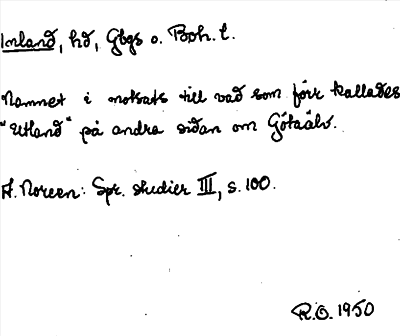 Inland, hd, Gbgs o. Boh. l.
Namnet i motsats till vad som förr kallades
"Utland" på andra sidan om Götaälv.
A. Noreen: Spr. studier III, s. 100.
R.O. 1950